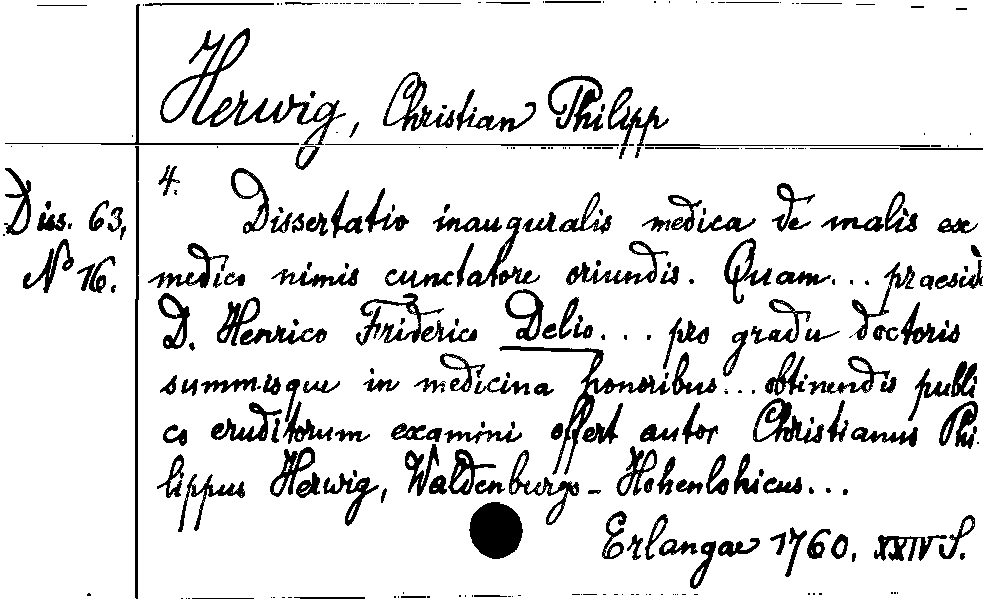 Herwig, Christian Philipp
4.
Diss. 63,
No 16.
Dissertatio inauguralis medica de malis ex
medico nimis cunctatore oriundis. Quam... praeside
D. Henrico Friderico Delio... pro gradu doctoris
summisque in medicina honoribus... obtinendis publi
co eruditorum examini offert autor Christianus Phi
lippus Herwig, Waldenburgo-Hohenlohicus...
Erlangae 1760. XXIV S.